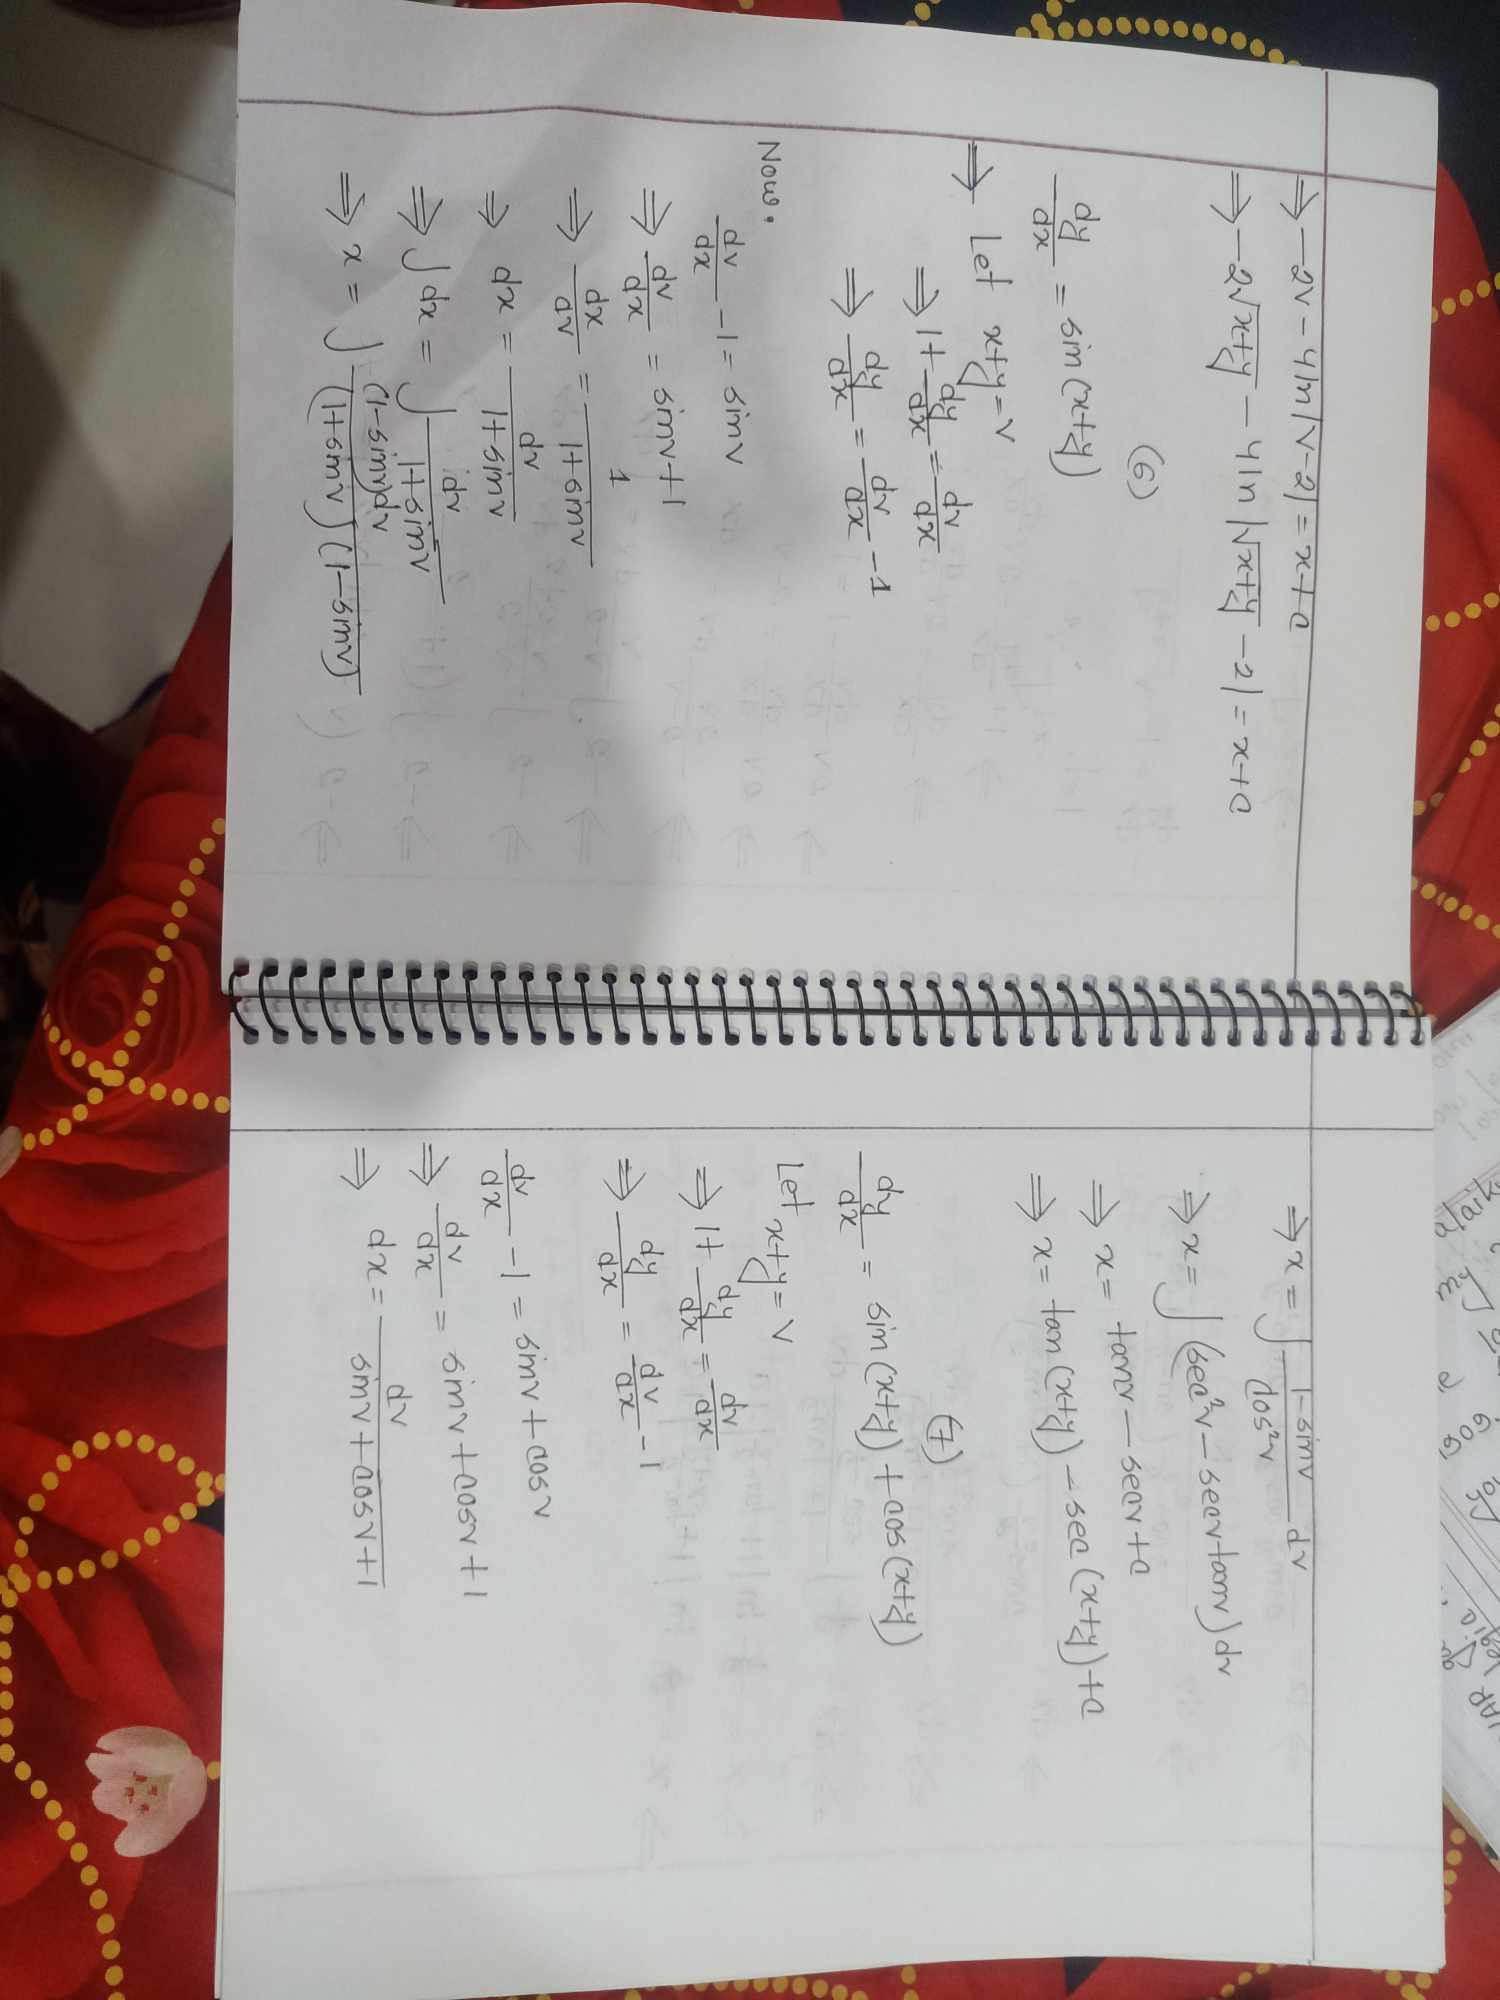 ⇒ -2v - 4ln|v-2| = x+c
⇒ -2√(x+y) - 4ln|√(x+y) - 2| = x+c
(6)
dy/dx = sin(x+y)
⇒ Let x+y=v
⇒ 1+ dy/dx = dv/dx
⇒ dy/dx = dv/dx - 1
Now,
dv/dx - 1 = sinv
⇒ dv/dx = sinv+1
⇒ dx/dv = 1/(1+sinv)
⇒ dx = dv/(1+sinv)
⇒ ∫dx = ∫ dv/(1+sinv)
⇒ x = ∫ (1-sinv)dv/((1+sinv)(1-sinv))
⇒ x = ∫ (1-sinv)/(cos²v) dv
⇒ x = ∫ (sec²v - secv tanv) dv
⇒ x = tanv - secv + c
⇒ x = tan(x+y) - sec(x+y) + c
(7)
dy/dx = sin(x+y) + cos(x+y)
Let x+y = v
⇒ 1+ dy/dx = dv/dx
⇒ dy/dx = dv/dx - 1
dv/dx - 1 = sinv + cosv
⇒ dv/dx = sinv + cosv + 1
⇒ dx = dv/(sinv + cosv + 1)